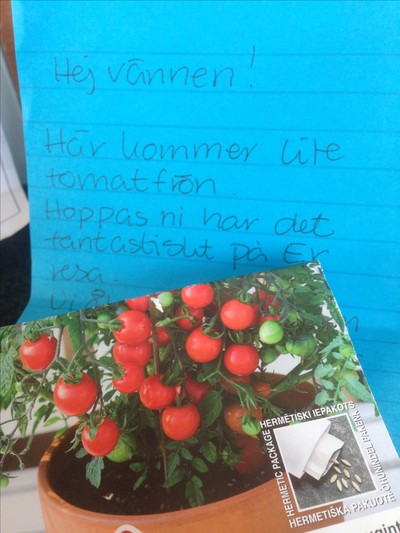 Hej vännen!
Här kommer lite
tomatfrön.
Hoppas ni har det
fantastiskt på Er
resa.
HERMĒTISKI IEPAKOTS
HERMETIC PACKAGE
HERMETIŠKA PAKUOTĖ